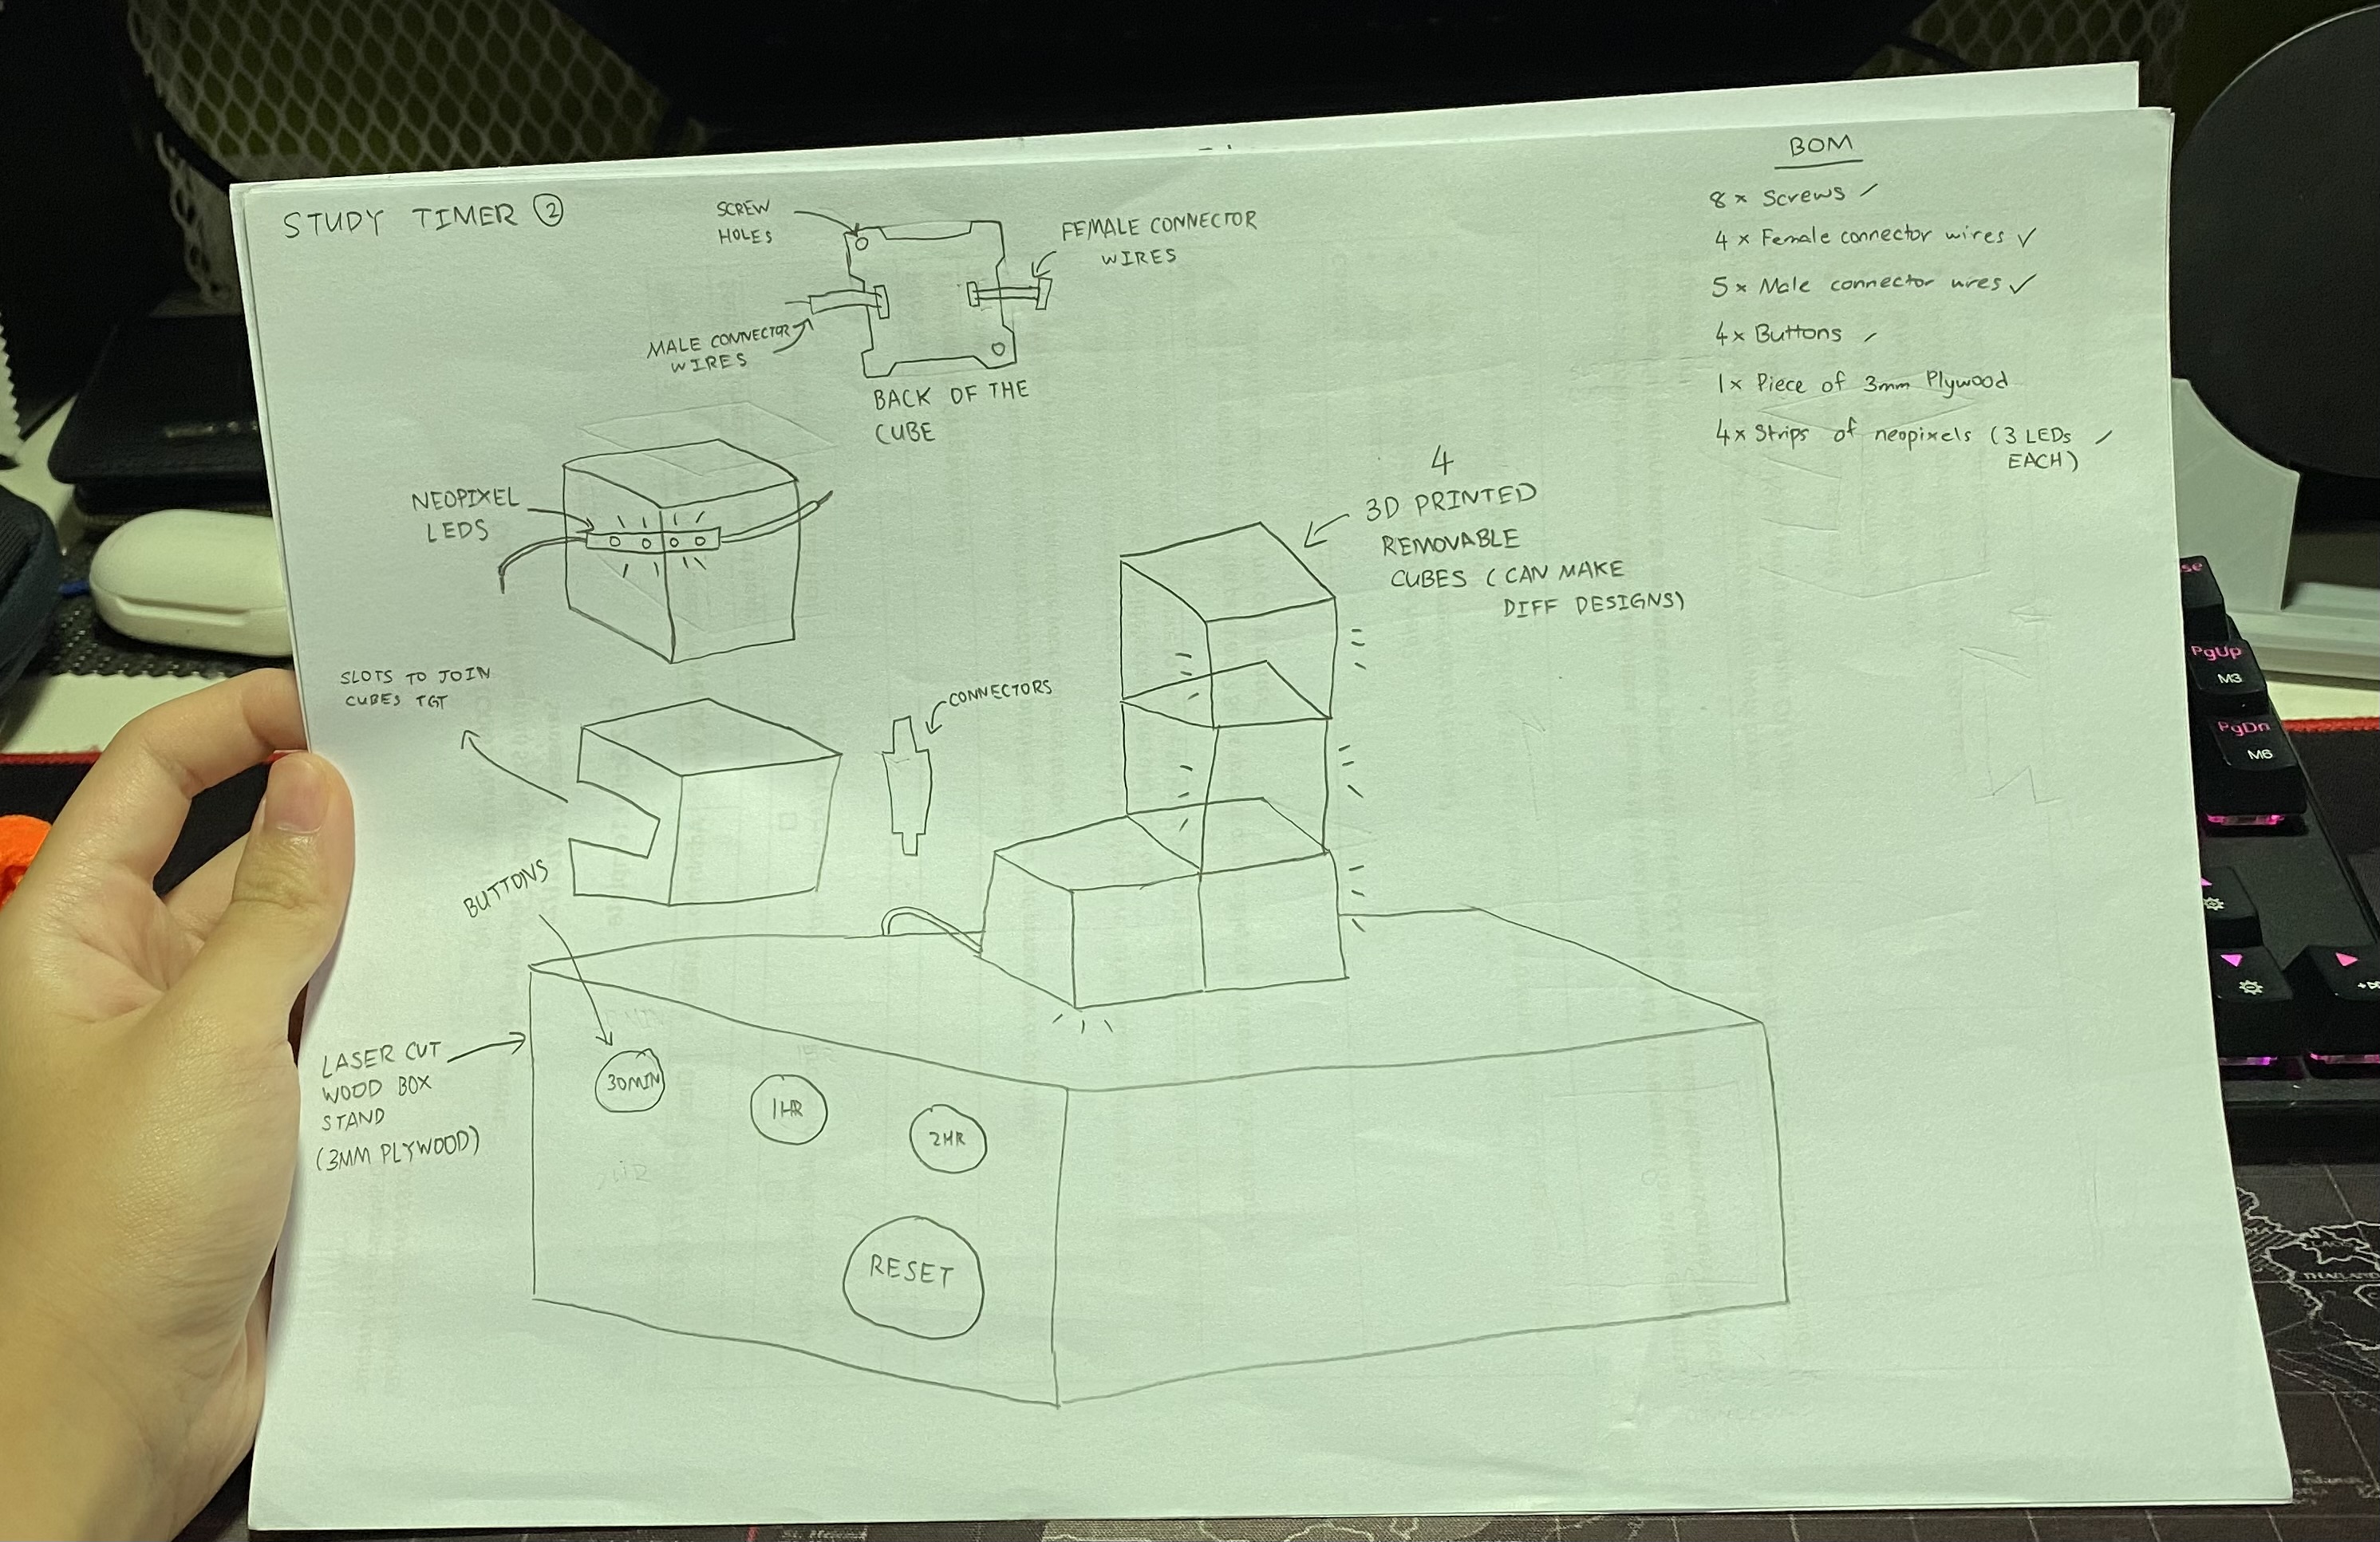 STUDY TIMER ②
SCREW
HOLES
FEMALE CONNECTOR
WIRES
MALE CONNECTOR
WIRES
BACK OF THE
CUBE
BOM
8 x Screws
4 x Female connector wires ✓
5 x Male connector wires ✓
4 x Buttons
1 x Piece of 3mm Plywood
4 x Strips of neopixels (3 LEDs
EACH)
NEOPIXEL
LEDS
4
3D PRINTED
REMOVABLE
CUBES (CAN MAKE
DIFF DESIGNS)
SLOTS TO JOIN
CUBES TGT
CONNECTORS
BUTTONS
LASER CUT
WOOD BOX
STAND
(3MM PLYWOOD)
30MIN
1HR
2HR
RESET
se
PgUp
M3
PgDn
M6
THAILAND